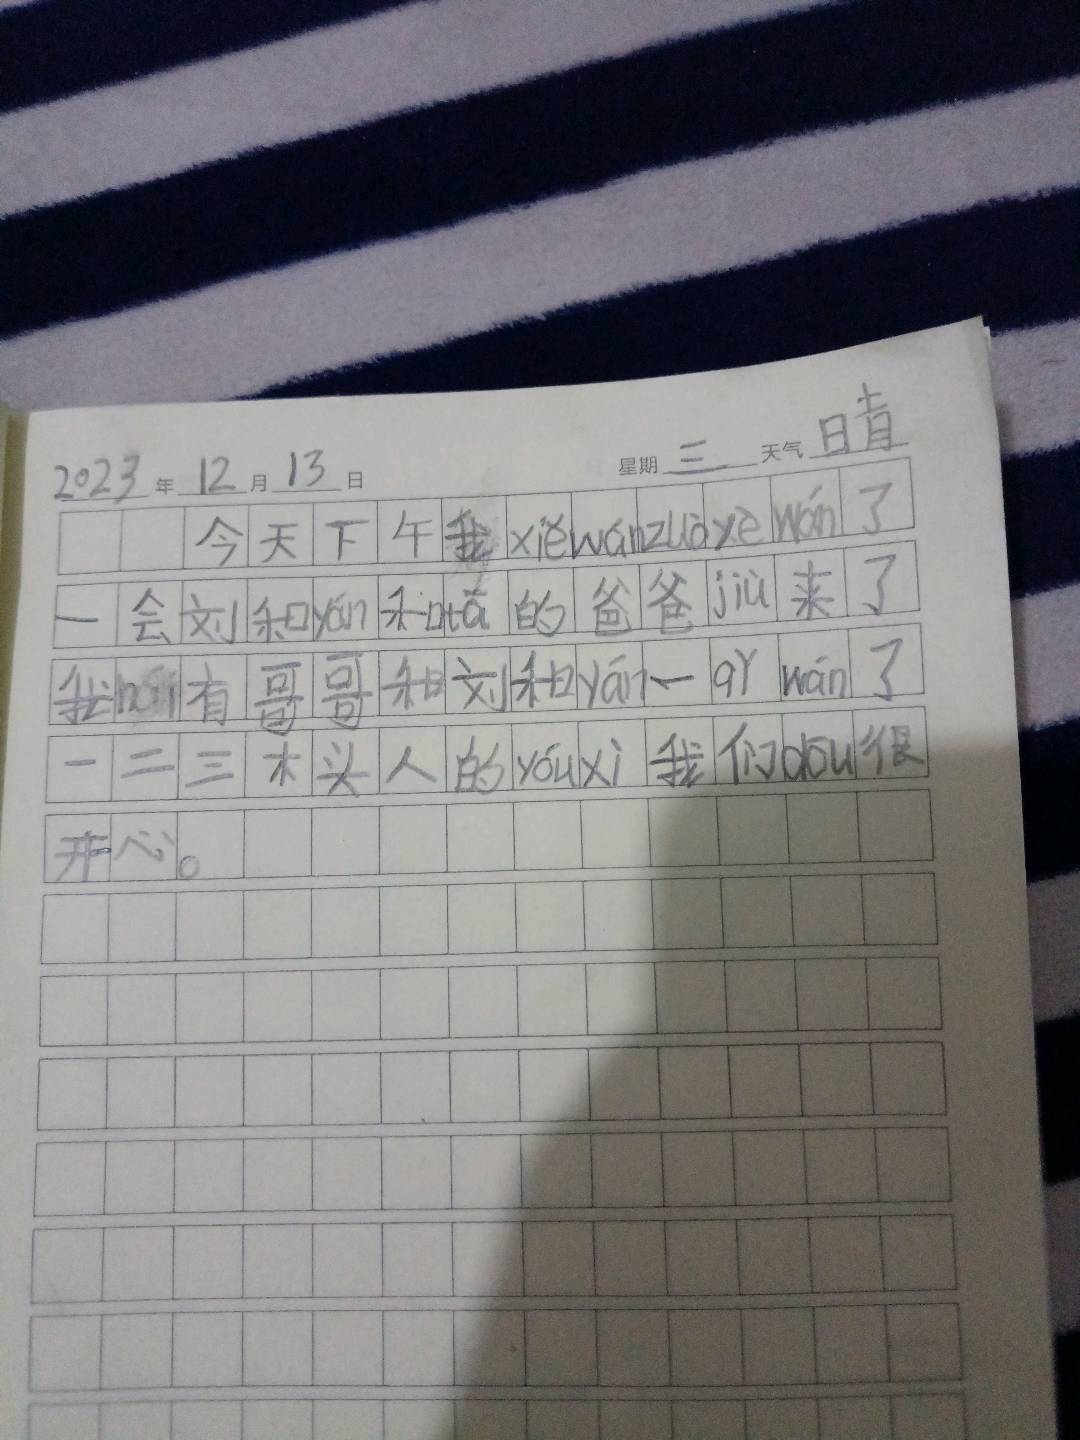 2023年12月13日 星期三 天气晴
今天下午我xiěwánzuòyèwán了
一会刘和yán和tā的爸爸jiù来了
我hái有哥哥和刘和yán一qǐwán了
一二三木头人的yóuxì我们dōu很
开心。